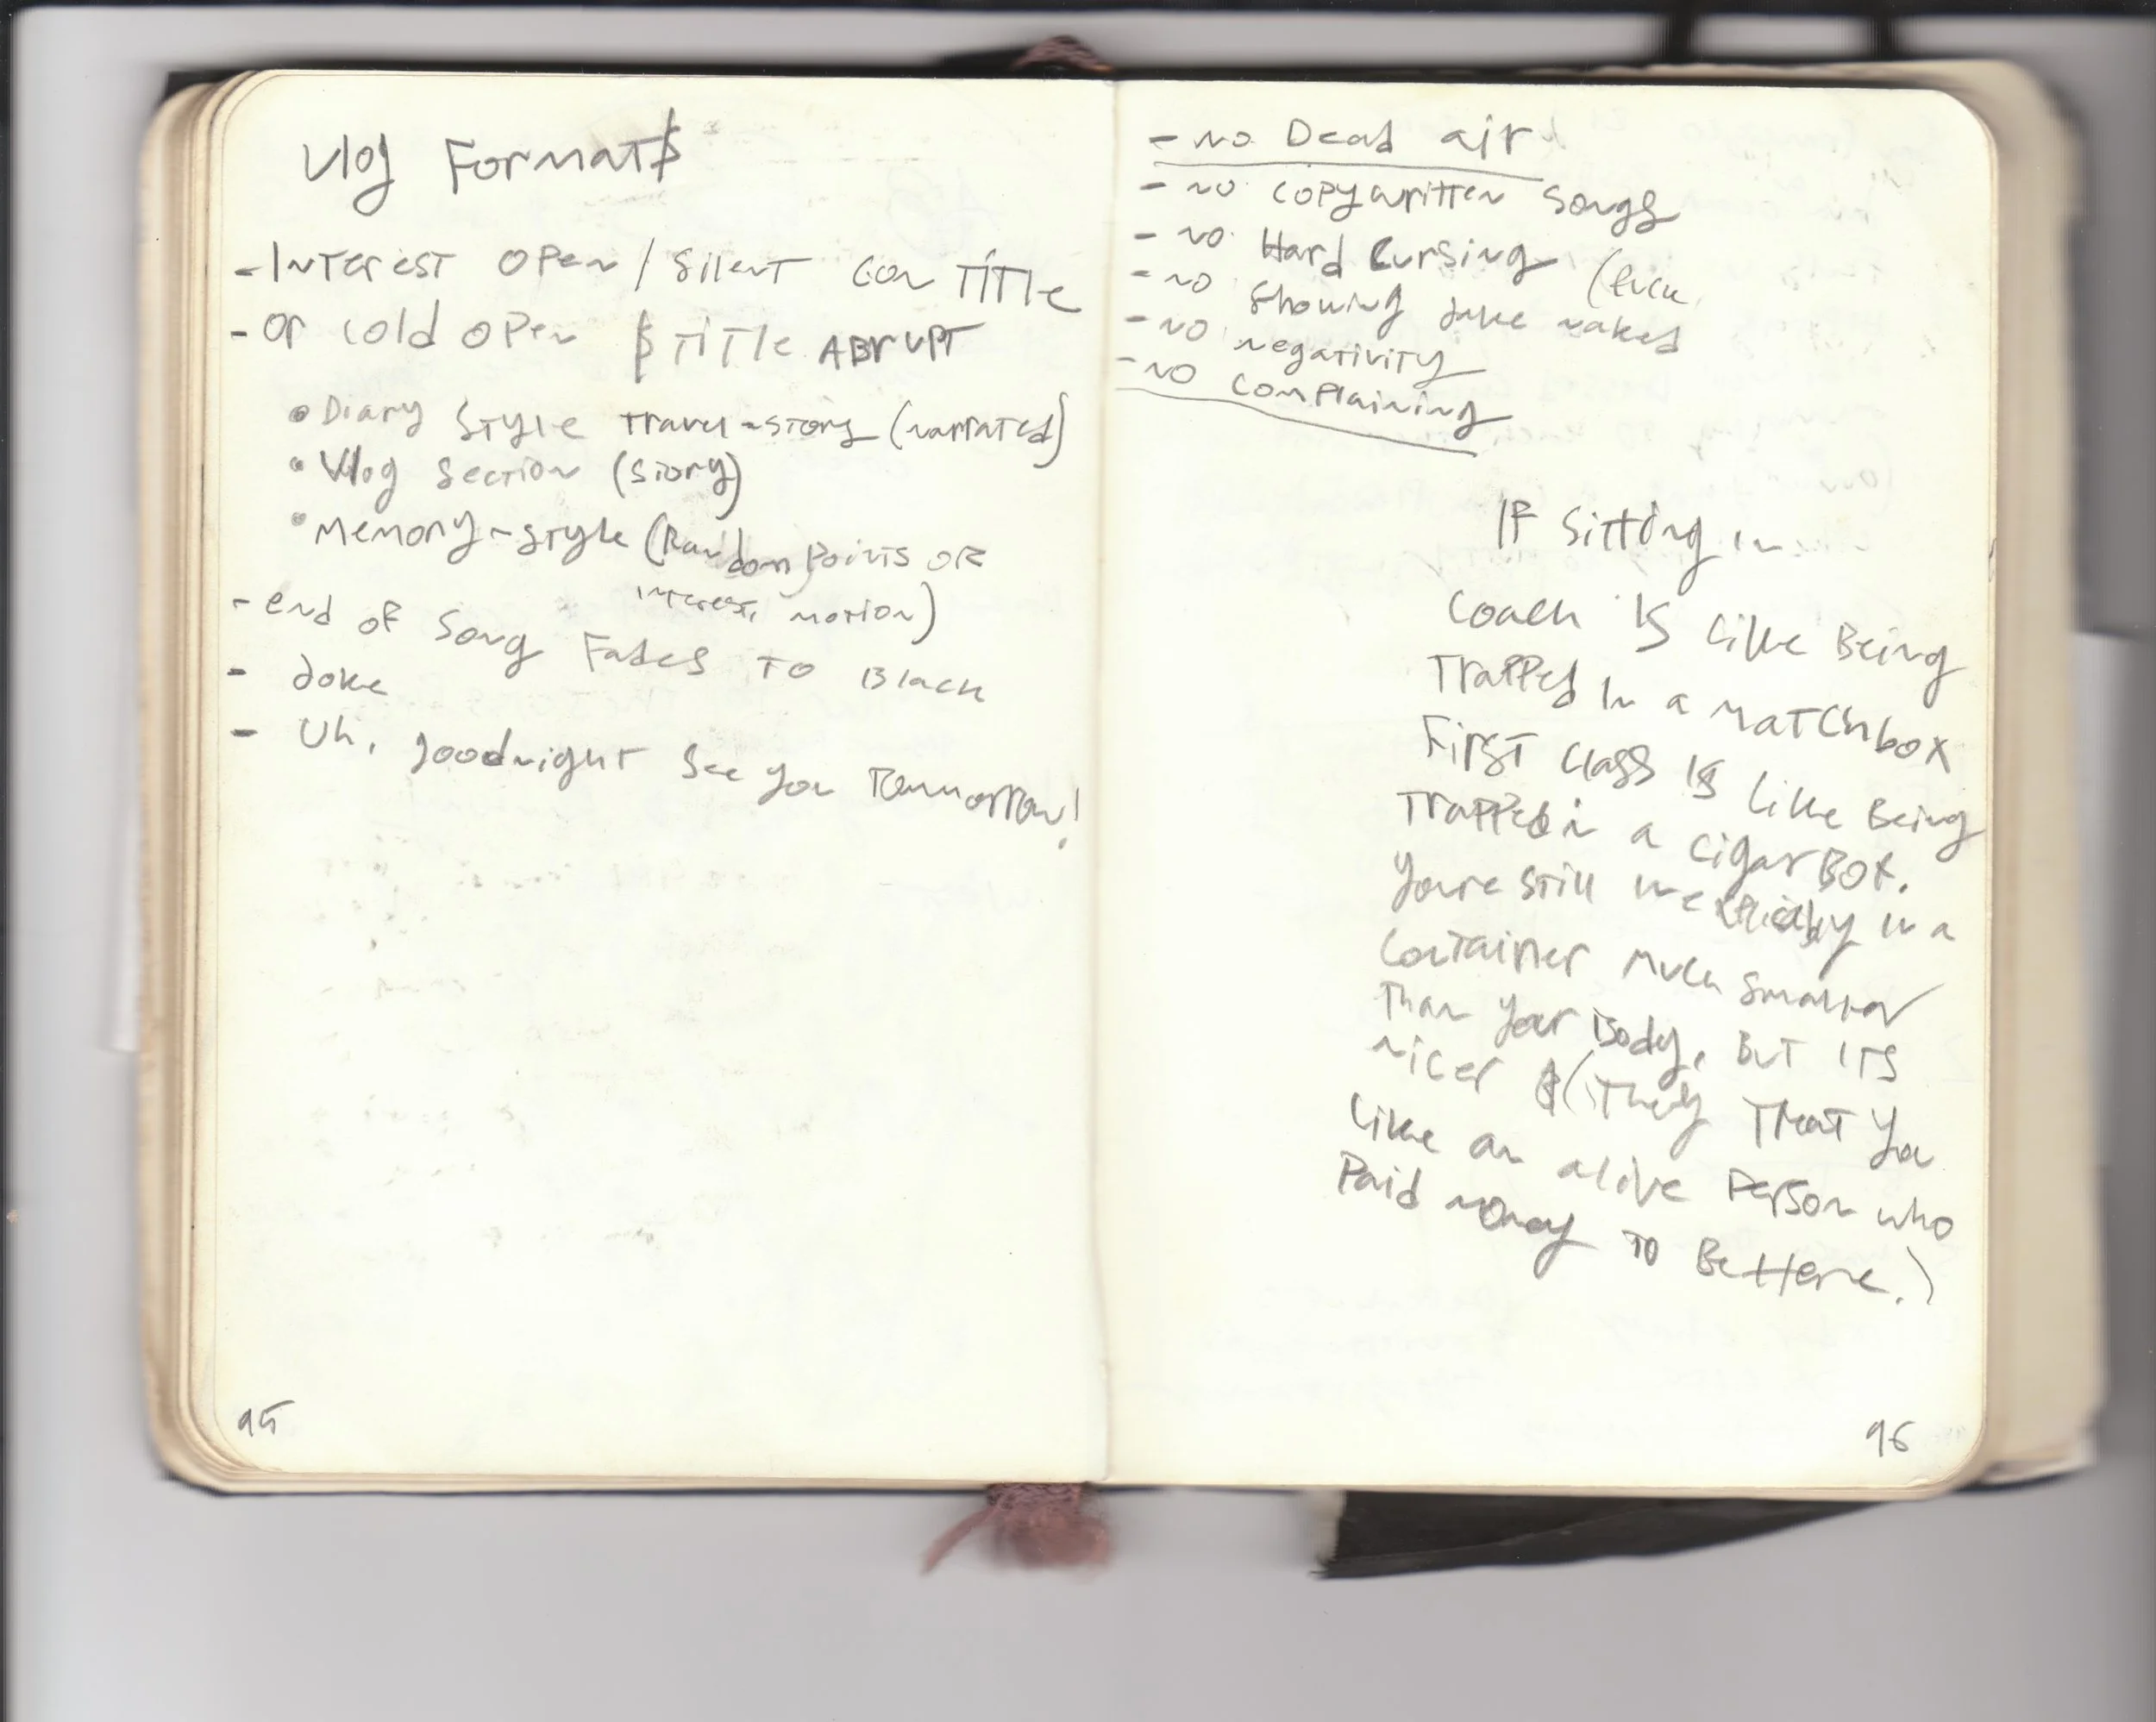 Vlog Format$
- Interest open / silent con title
- or cold open $ title ABrupt
• Diary style travel-story (narrated)
• Vlog section (story)
• Memory-style (Random points or
interest, motion)
- end of song fades to Black
- Joke
- Uh, goodnight see you tommorrow!
95
- no Dead air
- no copywritten songs
- no Hard Cursing
- no showing Jake naked
- no negativity
- no complaining
If sitting in
coach is like Being
Trapped in a matchbox
First class is like Being
Trapped in a cigar Box.
Youre still in a
container much smaller
than your Body, But its
nicer $ (they treat you
like an alive person who
Paid money to Be Here.)
96